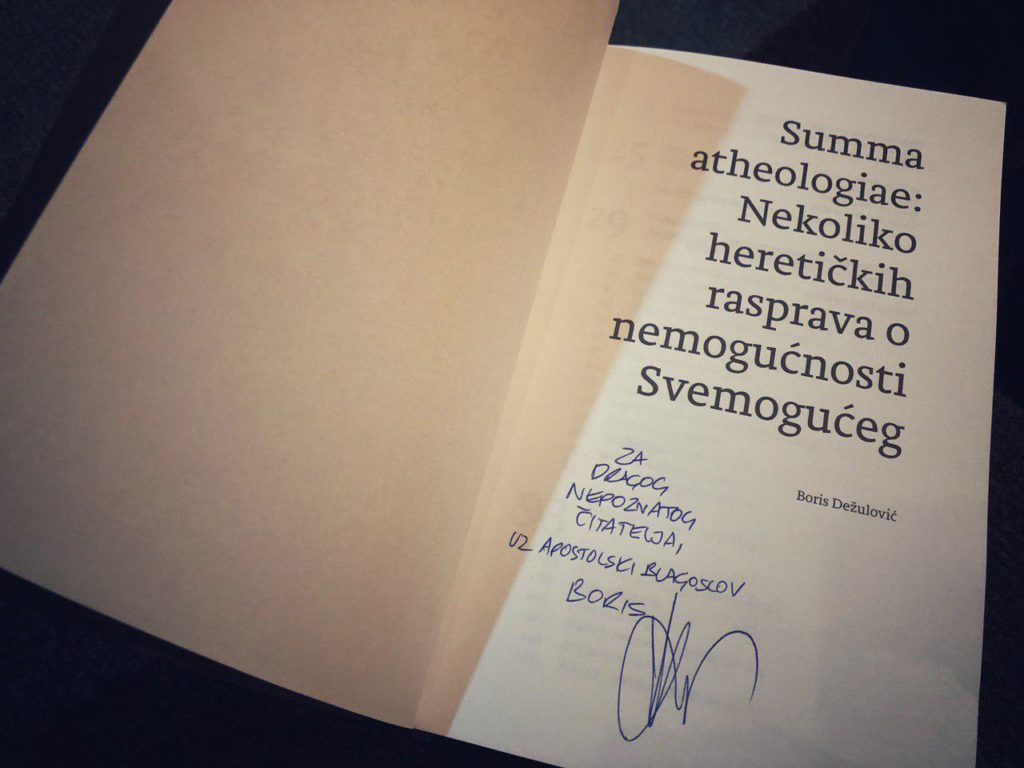 Summa
atheologiae:
Nekoliko
heretičkih
rasprava o
nemogućnosti
Svemogućeg
Boris Dežulović
ZA
DRAGOG
NEPOZNATOG
ČITATELJA,
UZ APOSTOLSKI BLAGOSLOV
BORIS